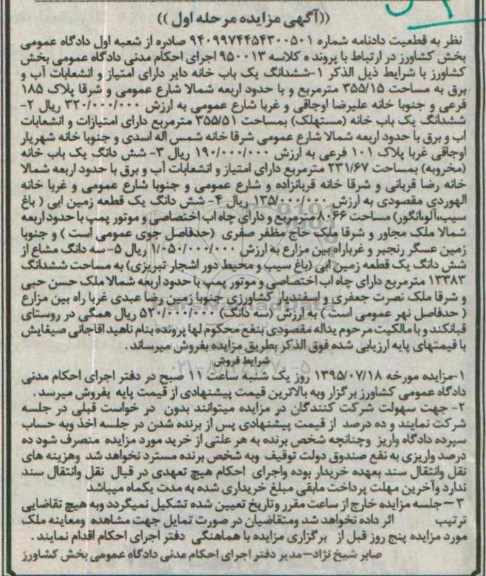 ((آگهی مزایده مرحله اول ))
نظر به قطعیت دادنامه شماره ۹۴۰۹۹۷۴۴۵۴۳۰۰۵۰۱ صادره از شعبه اول دادگاه عمومی
بخش کشاورز در ارتباط با پرونده کلاسه ۹۵۰۰۱۳ اجرای احکام مدنی دادگاه عمومی بخش
کشاورز با شرایط ذیل الذکر ۱-ششدانگ یک باب خانه دایر دارای امتیاز و انشعابات آب و
برق به مساحت ۳۵۵/۱۵ مترمربع و با حدود اربعه شمالا شارع عمومی و شرقا پلاک ۱۸۵
فرعی و جنوبا خانه علیرضا اوجاقی و غربا شارع عمومی به ارزش ۳۲۰/۰۰۰/۰۰۰ ریال ۲-
ششدانگ یک باب خانه (مستهلک) بمساحت ۳۵۵/۵۱ مترمربع دارای امتیازات و انشعابات
اب و برق با حدود اربعه شمالا شارع عمومی شرقا خانه شمس اله اسدی و جنوبا خانه شهریار
اوجاقی غربا پلاک ۱۰۱ فرعی به ارزش ۱۹۰/۰۰۰/۰۰۰ ریال ۳- شش دانگ یک باب خانه
(مخروبه) بمساحت ۲۳۱/۶۷ مترمربع دارای امتیاز و انشعابات آب و برق با حدود اربعه شمالا
خانه رضا قربانی و شرقا خانه قربانزاده و شارع عمومی و جنوبا شارع عمومی و غربا خانه
الهوردی مقصودی به ارزش ۱۳۵/۰۰۰/۰۰۰ ریال ۴- شش دانگ یک قطعه زمین ابی ( باغ
سیب،آلوانگور) مساحت ۸۰۶۶ مترمربع و دارای چاه اب اختصاصی و موتور پمپ با حدود اربعه
شمالا ملک مجاور و شرقا ملک حاج مظفر صفری (حدفاصل جوی عمومی است ) و جنوبا
زمین عسگر رنجبر و غربا راه بین مزارع به ارزش ۱/۰۵۰/۰۰۰/۰۰۰ ریال ۵-سه دانگ مشاع از
شش دانگ یک قطعه زمین ابی (باغ سیب و محیط دور اشجار تبریزی) به مساحت ششدانگ
۱۳۳۸۳ مترمربع دارای چاه اب اختصاصی و موتور پمپ با حدود اربعه شمالا ملک حسن حبی
و شرقا ملک نصرت جعفری و اسفندیار کشاورزی جنوبا زمین رضا عبدی غربا راه بین مزارع
( حدفاصل نهر عمومی است ) به ارزش (سه دانگ) ۵۲۰/۰۰۰/۰۰۰ ریال همگی در روستای
قبانکند و با مالکیت مرحوم یداله مقصودی بنفع محکوم لها پرونده بنام ناهید اقاجانی صیقایش
با قیمتهای پایه ارزیابی شده فوق الذکر بطریق مزایده بفروش میرساند.
شرایط فروش
۱-مزایده مورخه ۱۳۹۵/۰۷/۱۸ روز یک شنبه ساعت ۱۱ صبح در دفتر اجرای احکام مدنی
دادگاه عمومی کشاورز برگزار وبه بالاترین قیمت پیشنهادی از قیمت پایه بفروش میرسد.
۲- جهت سهولت شرکت کنندگان در مزایده میتوانند بدون در خواست قبلی در جلسه
شرکت نمایند و ده درصد از قیمت پیشنهادی پس از برنده شدن در جلسه اخذ وبه حساب
سپرده دادگاه واریز وچنانچه شخص برنده به هر علتی از خرید مورد مزایده منصرف شود ده
درصد واریزی به نفع صندوق دولت توقیف وبه شخص برنده مسترد نخواهد شد وهزینه های
نقل وانتقال سند بعهده خریدار بوده واجرای احکام هیچ تعهدی در قبال نقل وانتقال سند
ندارد وآخرین مهلت پرداخت مابقی مبلغ خریداری شده به مدت یکماه میباشد
۳-جلسه مزایده خارج از ساعت مقرر وتاریخ تعیین شده تشکیل نمیگردد وبه هیچ تقاضایی
ترتیب اثر داده نخواهد شد ومتقاضیان در صورت تمایل جهت مشاهده ومعاینه ملک
مورد مزایده پنج روز قبل از برگزاری مزایده با هماهنگی دفتر اجرای احکام اقدام نمایند.
صابر شیخ نژاد-مدیر دفتر اجرای احکام مدنی دادگاه عمومی بخش کشاورز